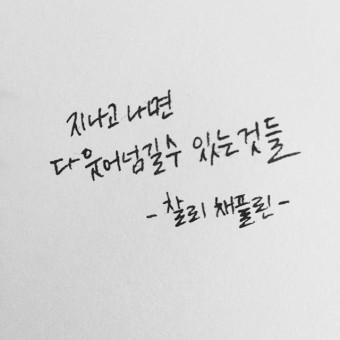 지나고 나면
다 웃어넘길수 있는것들
- 찰리 채플린 -